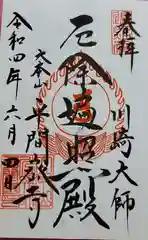 奉拝
川崎大師
厄除遍照殿
大本山
平間寺
令和四年六月
四日